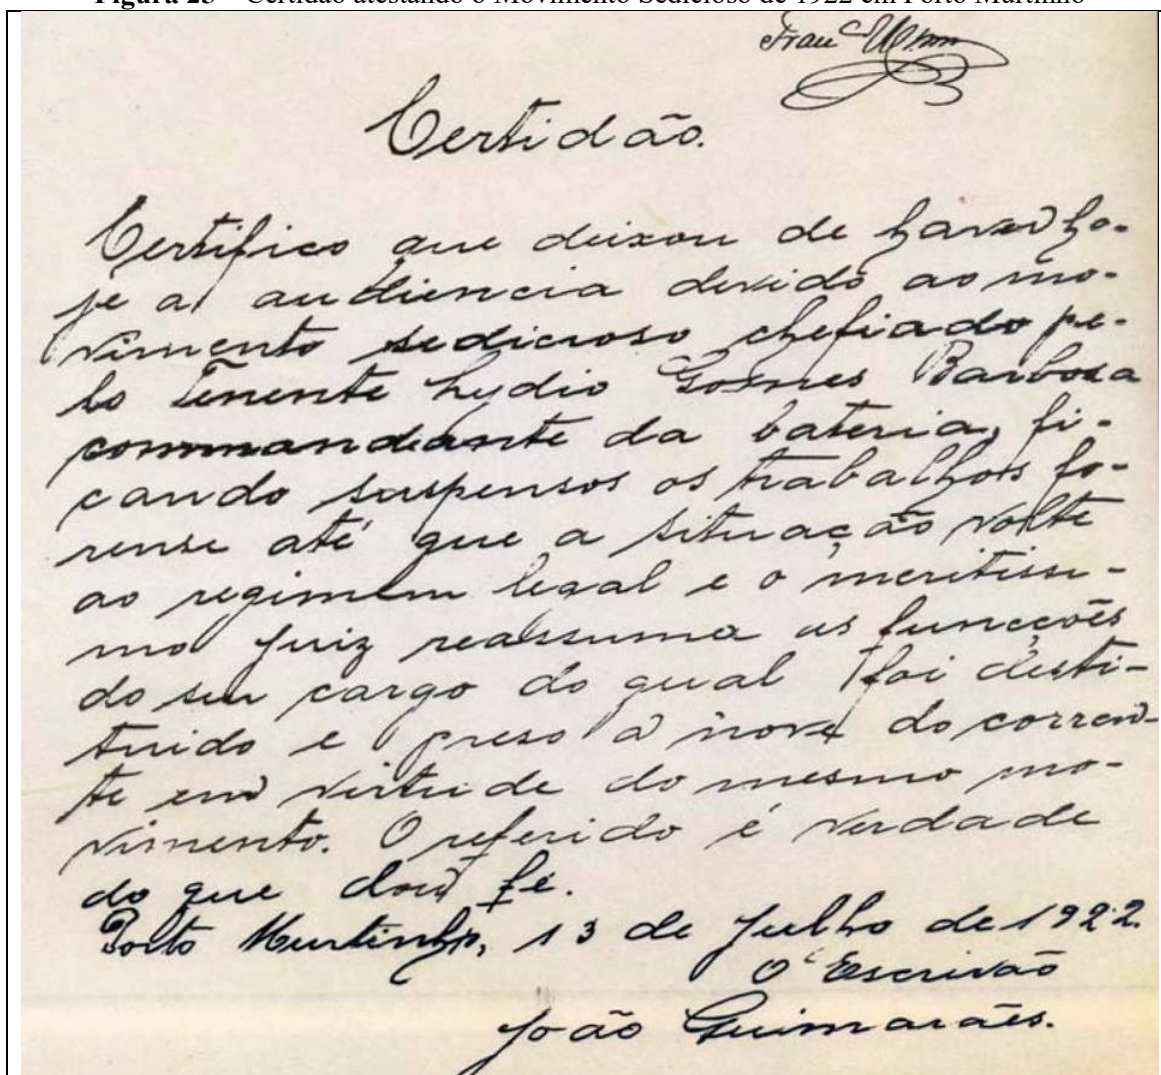 Figura 25 – Certidão atestando o Movimento Sedicioso de 1922 em Porto Murtinho
Franc
Certidão.
Certifico que deixou de haver ho-
je a audiencia devido ao mo-
vimento sedicioso chefiado pe-
lo Tenente Lydio Gomes Barbosa
commandante da bateria, fi-
cando suspensos os trabalhos fo-
rense até que a situação volte
ao regimem legal e o meritissi-
mo Juiz reassuma as funcções
do seu cargo do qual foi desti-
tuido e preso a nove do corren-
te em virtude do mesmo mo-
vimento. O referido é verdade
do que dou fé.
Porto Murtinho, 13 de Julho de 1922.
O Escrivão
João Guimarães.